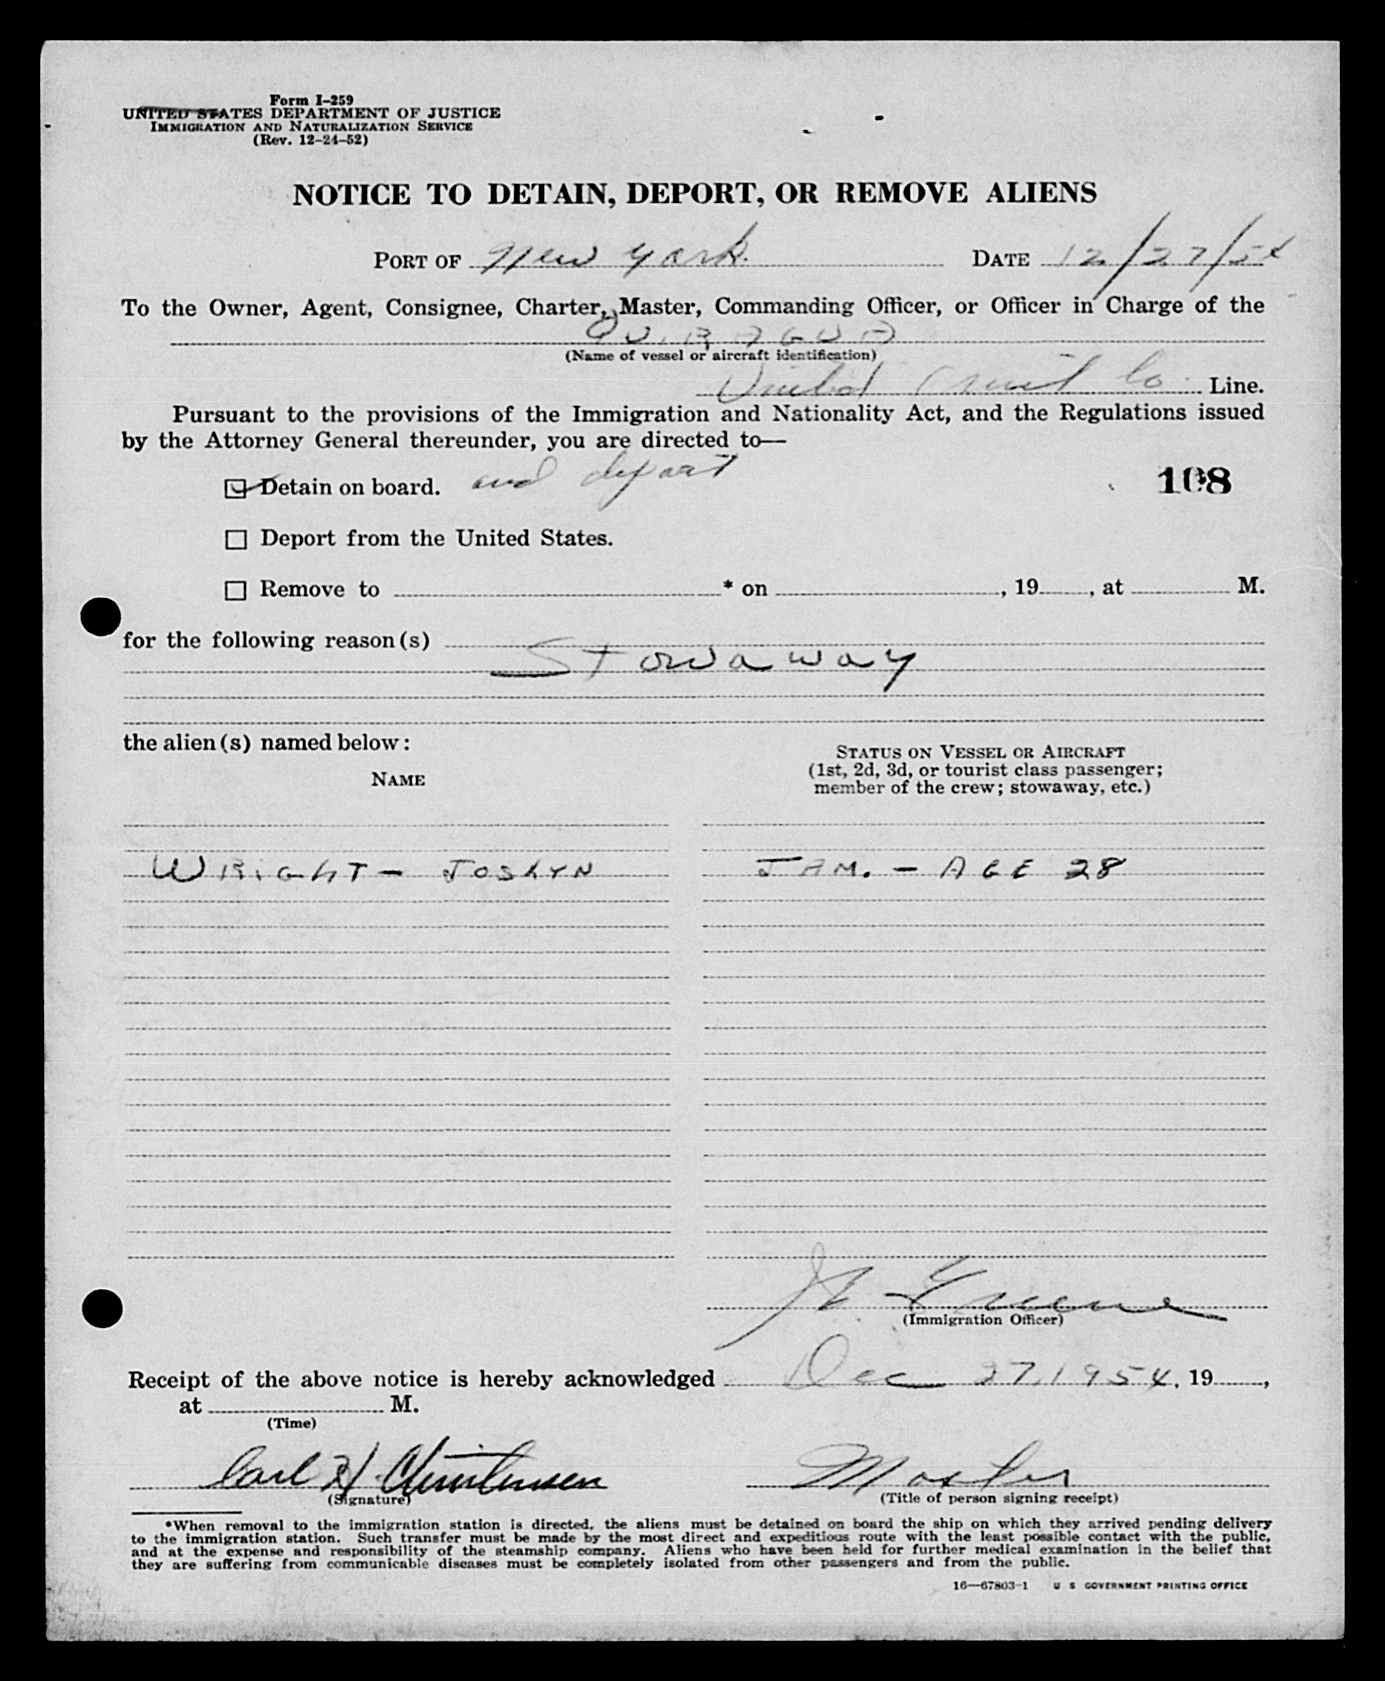 Form I-259
UNITED STATES DEPARTMENT OF JUSTICE
IMMIGRATION AND NATURALIZATION SERVICE
(Rev. 12-24-52)
NOTICE TO DETAIN, DEPORT, OR REMOVE ALIENS
PORT OF New York. DATE 12/27/54
To the Owner, Agent, Consignee, Charter, Master, Commanding Officer, or Officer in Charge of the
QUIRAGUA
(Name of vessel or aircraft identification)
United Fruit Co Line.
Pursuant to the provisions of the Immigration and Nationality Act, and the Regulations issued
by the Attorney General thereunder, you are directed to—
Detain on board. and deport
108
Deport from the United States.
Remove to * on , 19 , at M.
for the following reason(s)
Stowaway
the alien(s) named below:
NAME
STATUS ON VESSEL OR AIRCRAFT
(1st, 2d, 3d, or tourist class passenger;
member of the crew; stowaway, etc.)
WRIGHT - JOSLYN JAM. - AGE 28
Greene
(Immigration Officer)
Receipt of the above notice is hereby acknowledged Dec 27, 1954, 19 ,
at M.
(Time)
Carl H. Christensen Master
(Signature) (Title of person signing receipt)
*When removal to the immigration station is directed, the aliens must be detained on board the ship on which they arrived pending delivery
to the immigration station. Such transfer must be made by the most direct and expeditious route with the least possible contact with the public,
and at the expense and responsibility of the steamship company. Aliens who have been held for further medical examination in the belief that
they are suffering from communicable diseases must be completely isolated from other passengers and from the public.
16—67803-1 U S GOVERNMENT PRINTING OFFICE